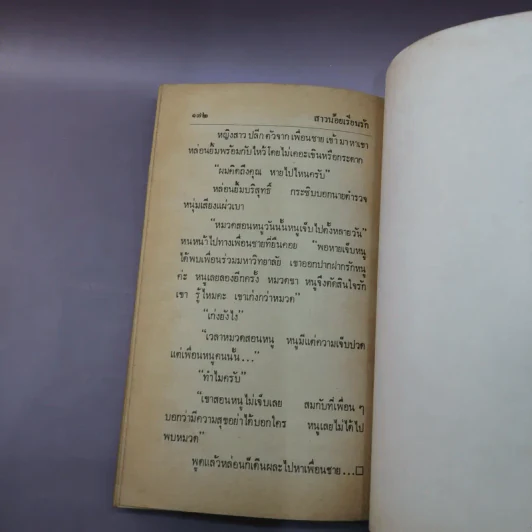 ๑๘๒ สาวน้อยเรียนรัก
หญิงสาว ปลีก ตัวจาก เพื่อนชาย เข้า มาหาเขา
หล่อนยิ้มพร้อมกับไหว้โดยไม่เคอะเขินหรือกระดาก
"ผมคิดถึงคุณ หายไปไหนครับ"
หล่อนยิ้มบริสุทธิ์ กระซิบบอกนายตำรวจ
หนุ่มเสียงแผ่วเบา
"หมวดสอนหนูวันนั้นหนูเจ็บไปตั้งหลายวัน"
หนหน้าไปทางเพื่อนชายที่ยืนคอย "พอหายเจ็บหนู
ได้พบเพื่อนร่วมมหาวิทยาลัย เขาออกปากฝากรักหนู
ค่ะ หนูเลยลองอีกครั้ง หมวดขา หนูจึงตัดสินใจรัก
เขา รู้ไหมคะ เขาเก่งกว่าหมวด"
"เก่งยังไง"
"เวลาหมวดสอนหนู หนูมีแต่ความเจ็บปวด
แต่เพื่อนหนูคนนั้น...."
"ทำไมครับ"
"เขาสอนหนูไม่เจ็บเลย สมกับที่เพื่อน ๆ
บอกว่ามีความสุขอย่าได้บอกใคร หนูเลยไม่ได้ไป
พบหมวด"
พูดแล้วหล่อนก็เดินผละไปหาเพื่อนชาย....□